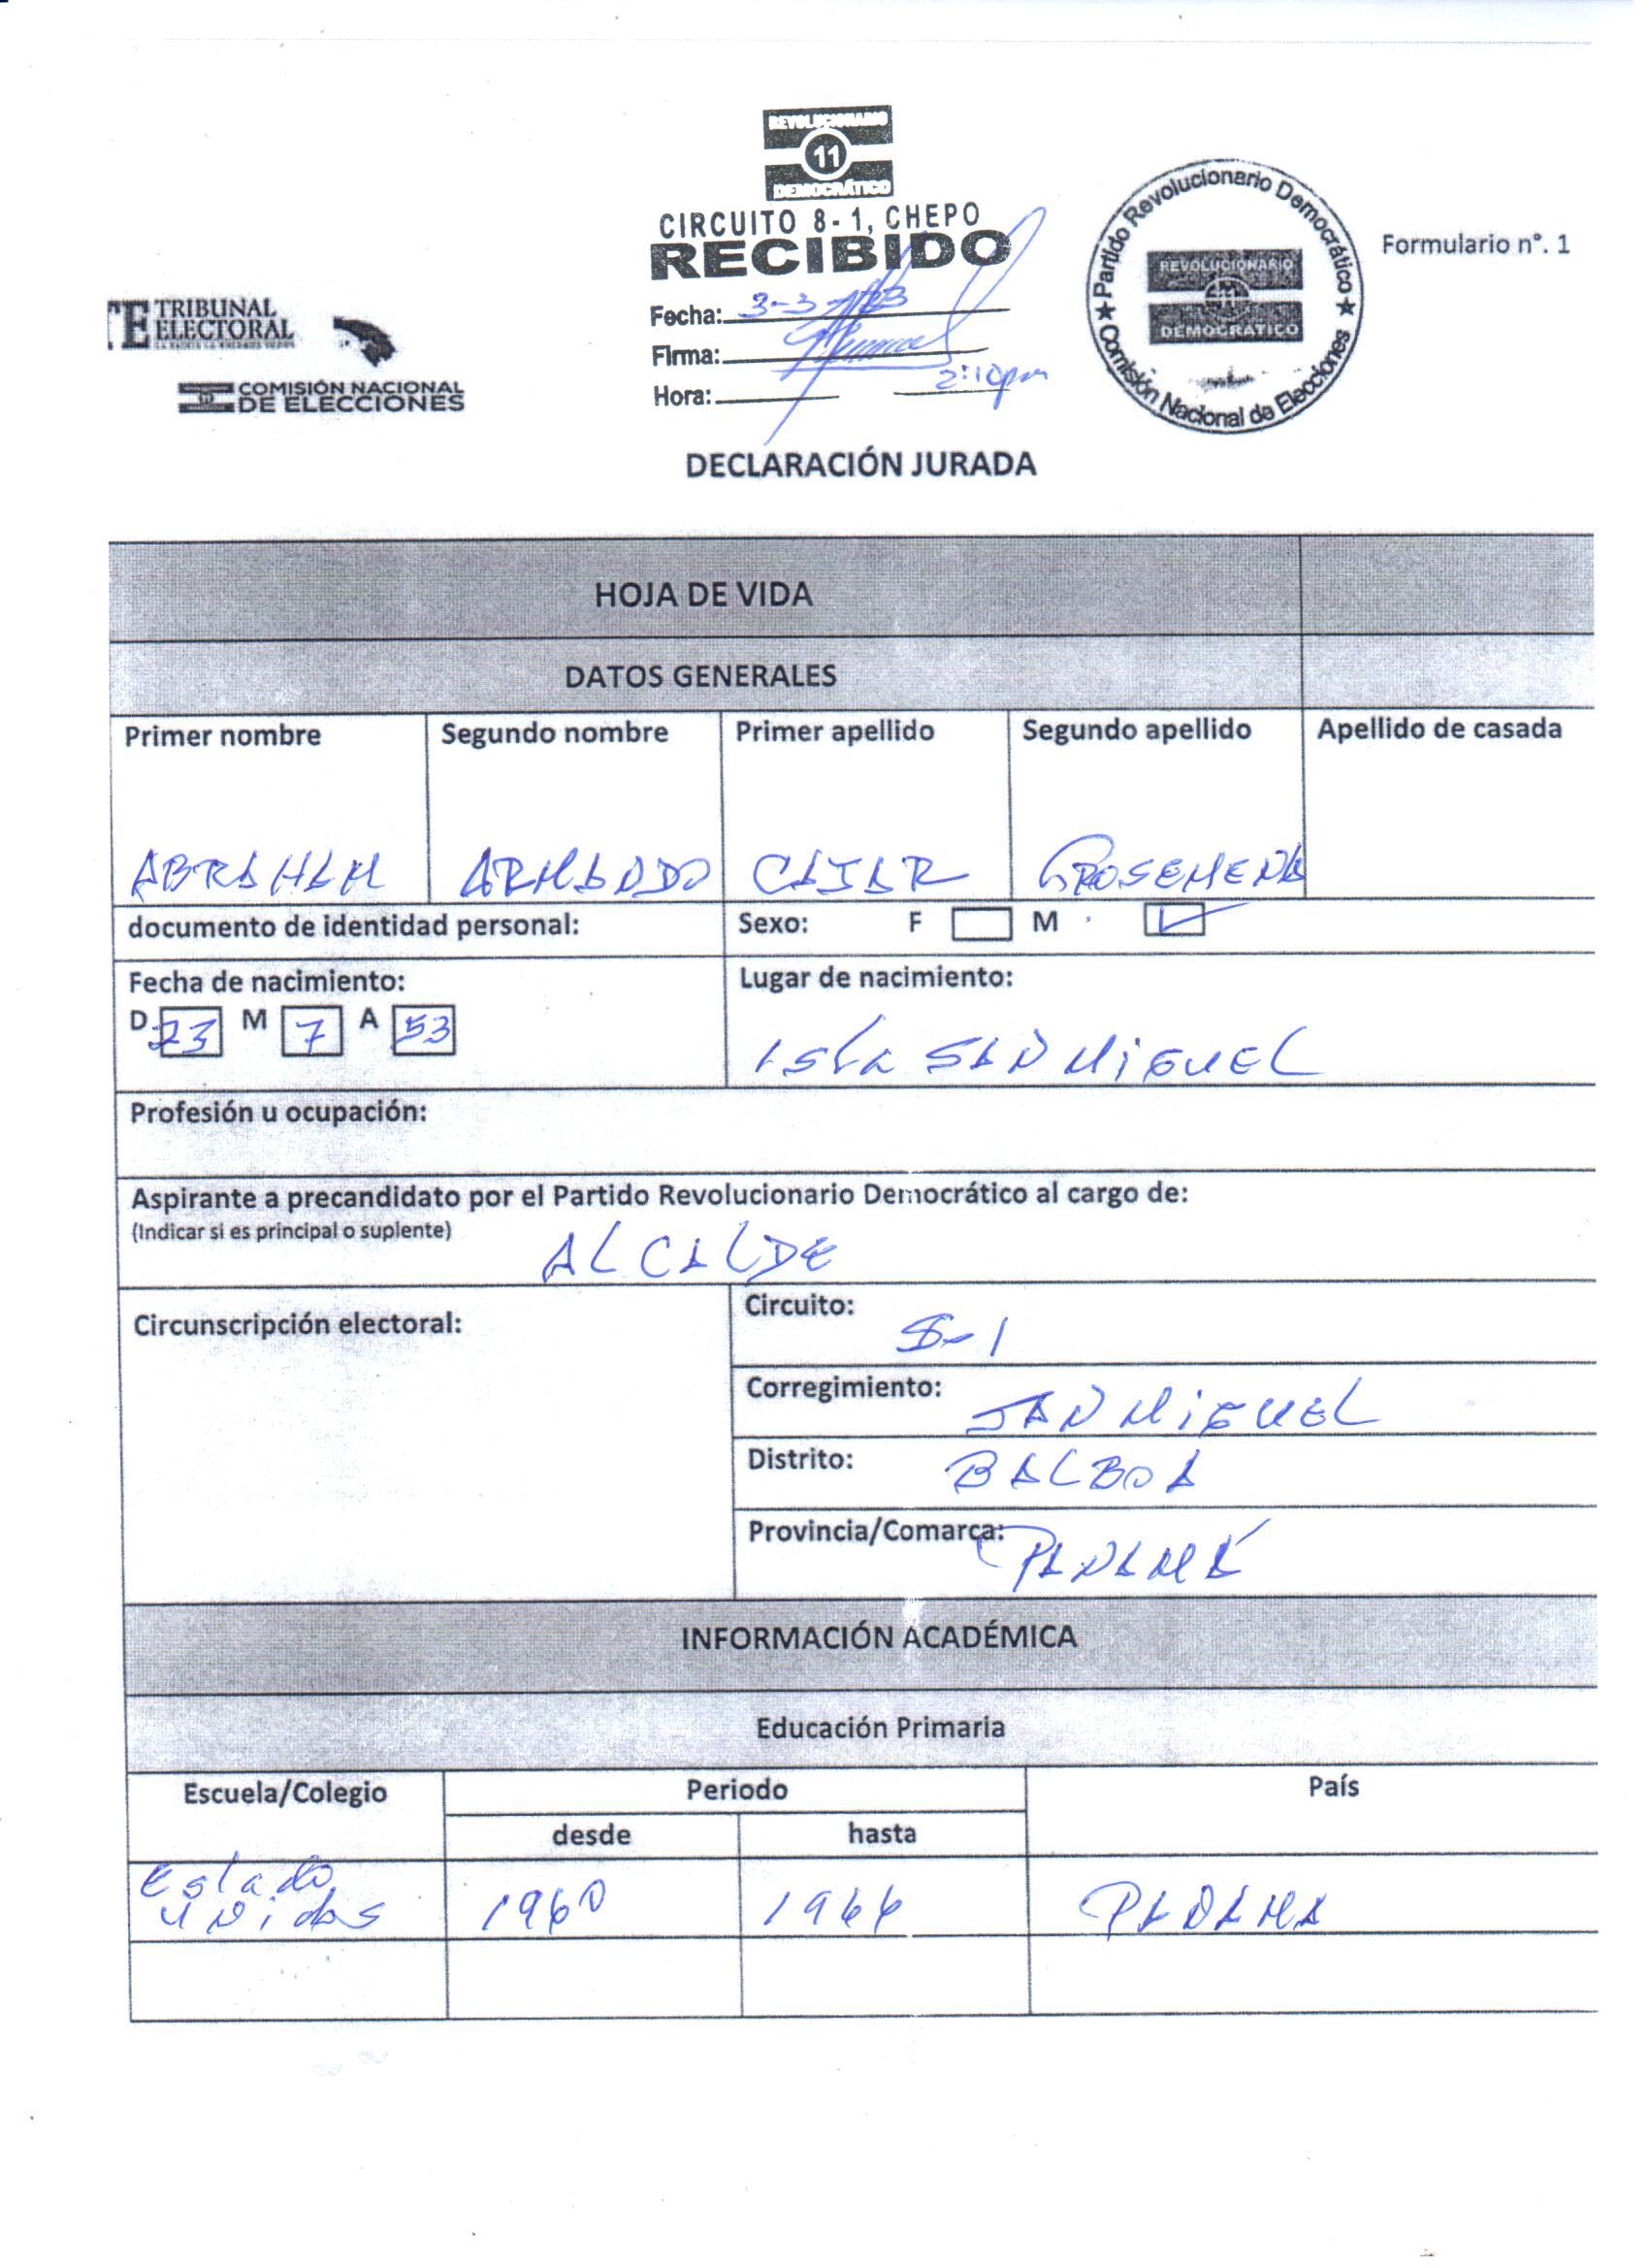 REVOLUCIONARIO
11
DEMOCRÁTICO
CIRCUITO 8-1, CHEPO
RECIBIDO
Fecha: 3-3-
Firma:
Hora: 2:10pm
★ Partido Revolucionario Democrático ★
REVOLUCIONARIO
DEMOCRÁTICO
Comisión Nacional de Elecciones
Formulario nº. 1
TE TRIBUNAL
ELECTORAL
COMISIÓN NACIONAL
DE ELECCIONES
DECLARACIÓN JURADA
HOJA DE VIDA
DATOS GENERALES
Primer nombre Segundo nombre Primer apellido Segundo apellido Apellido de casada
ABRAHAM ARMANDO CAJAR GROSEMENA
documento de identidad personal: Sexo: F M
Fecha de nacimiento: Lugar de nacimiento:
D 23 M 7 A 53
ISLA SAN MIGUEL
Profesión u ocupación:
Aspirante a precandidato por el Partido Revolucionario Democrático al cargo de:
(Indicar si es principal o suplente)
ALCALDE
Circunscripción electoral:
Circuito: 8-1
Corregimiento: SAN MIGUEL
Distrito: BALBOA
Provincia/Comarca: PANAMÁ
INFORMACIÓN ACADÉMICA
Educación Primaria
Escuela/Colegio Periodo País
desde hasta
Estado
Unidos 1960 1966 PANAMA